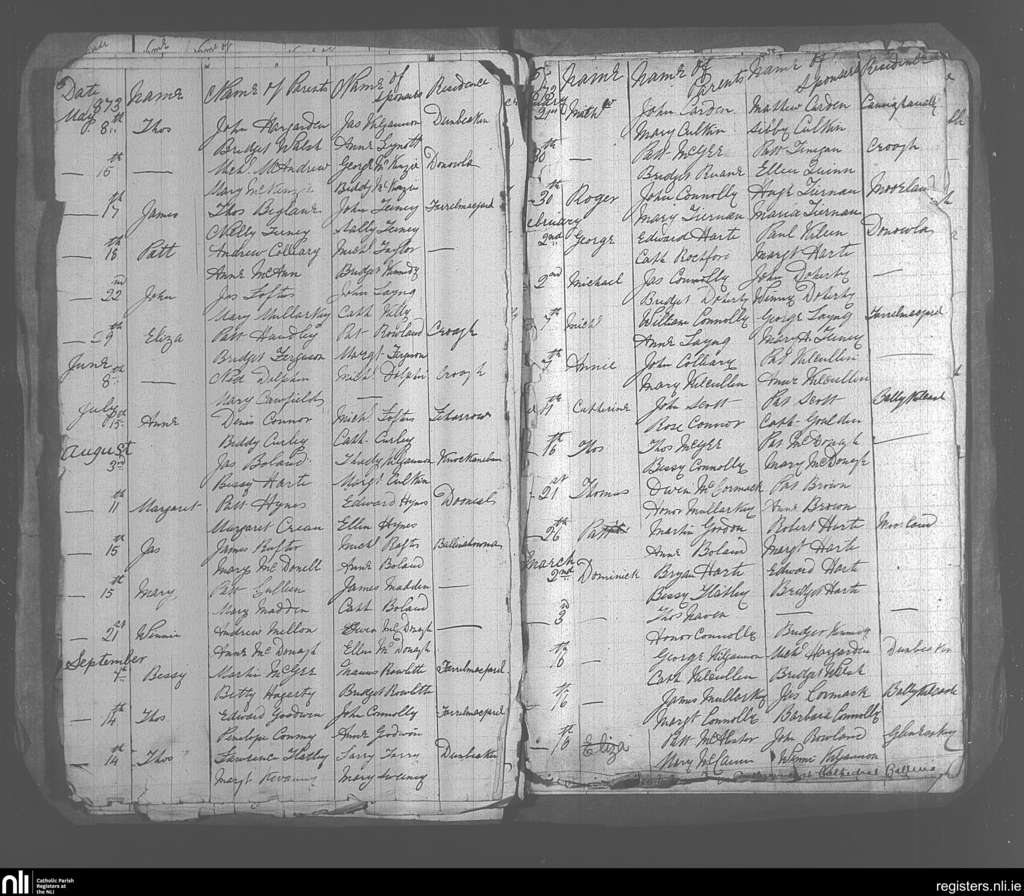 Date Name Name of Parents Name of Sponsors Residence
1873
May 8th Thos John Hargarden Jas Kilgannon Dunbeakin
Bridget Welsh Anne Lynott
— 16th — Mich. McAndrew George McKenzie Donowla
Mary McKenzie Biddy McKenzie
— 17th James Thos Beglane John Feeney Farrelmacfard
Feeney Feeney
— 18th Patt Andrew Colleary Michl Taylor —
Anne McAnn Bridget
— 22nd John Jas Loftus John Layng
Mary Mullarkey Cath
— 29th Eliza Patt Handley Pat Rowland Croagh
Bridget Ferguson Margt Ferguson
June 8th — Ned Dolphin Michl Dolphin Croagh
Mary —
July 15th Anne Denis Connor Mich Loftus
Biddy Curley Cath Curley
August
3rd Jas Boland Thady Kilgannon
Bessy Harte Margt Culkin
— 11th Margaret Patt Hynes Edward Hynes Dooneal
Margaret Crean Ellen Hynes
— 15th Jas James Rafter Michl Rafter
Mary McDonell Anne Boland
— 15th Mary Patt Cullen James Madden —
Mary Madden Cath Boland
— 21st Winnie Andrew Mellon Owen McDonagh —
Anne McDonagh Ellen McDonagh
September
7th Bessy Martin McGee Rowlette Farrelmacfard
Betty Hagerty Bridget Rowlette
— 14th Thos Edward Goodwin John Connolly Farrelmacfard
Penelope Conmy Anne Godwin
— 14th Thos Lawrence Flatley Larry Farry Dunbeakin
Margt Mary Sweeney
Name Name of Parents Name of Sponsors Residence
2nd John Carden Mathew Carden
Mary Culkin Sibby Culkin
30th — Patt McGee Patt Finegan Croagh
Bridget Ruane Ellen Quinn
— 30th Roger John Connolly Hugh Tiernan Mooreland
Mary Tiernan Maria Tiernan
ebruary
2nd George Edward Harte Paul Kileen Donowla
Cath Rochford Margt Harte
2nd Michael Jas Connolly John Doherty —
Bridget Doherty Winny Doherty
7th Michl William Connolly George Layng Farrelmacfard
Anne Layng Mary A. Feeney
7th Annie John Colleary Pat Kilcullin —
Mary Kilcullen Anne Kilcullin
11th Catherine John Scott Pat Scott
Rose Connor Cath Goulden
— 16th Thos Thos McGee Pat McDonagh —
Bessy Connolly Mary McDonagh
— 21st Thomas Owen McCormack Pat Brown
Honor Mullarkey Anne Brown
— 26th Patt Martin Gordon Robert Harte Mooreland
Anne Boland Margt Harte
March
2nd Dominick Bryan Harte Edward Hart —
Bessy Flatley Bridget Harte
3rd — Thos Naven — —
Honor Connolly Bridget
16th — George Kilgannon Michl Hargarden Dunbeakin
Cath Kilcullen Bridget Welsh
— 16 — James Mullarkey Jas Cormack
Margt Connolly Barbara Connolly
— 16th Eliza Patt McHestor John Rowland
Mary McCann Winnie Kilgannon
Cathedral Ballina
nli Catholic Parish
Registers at
the NLI
registers.nli.ie